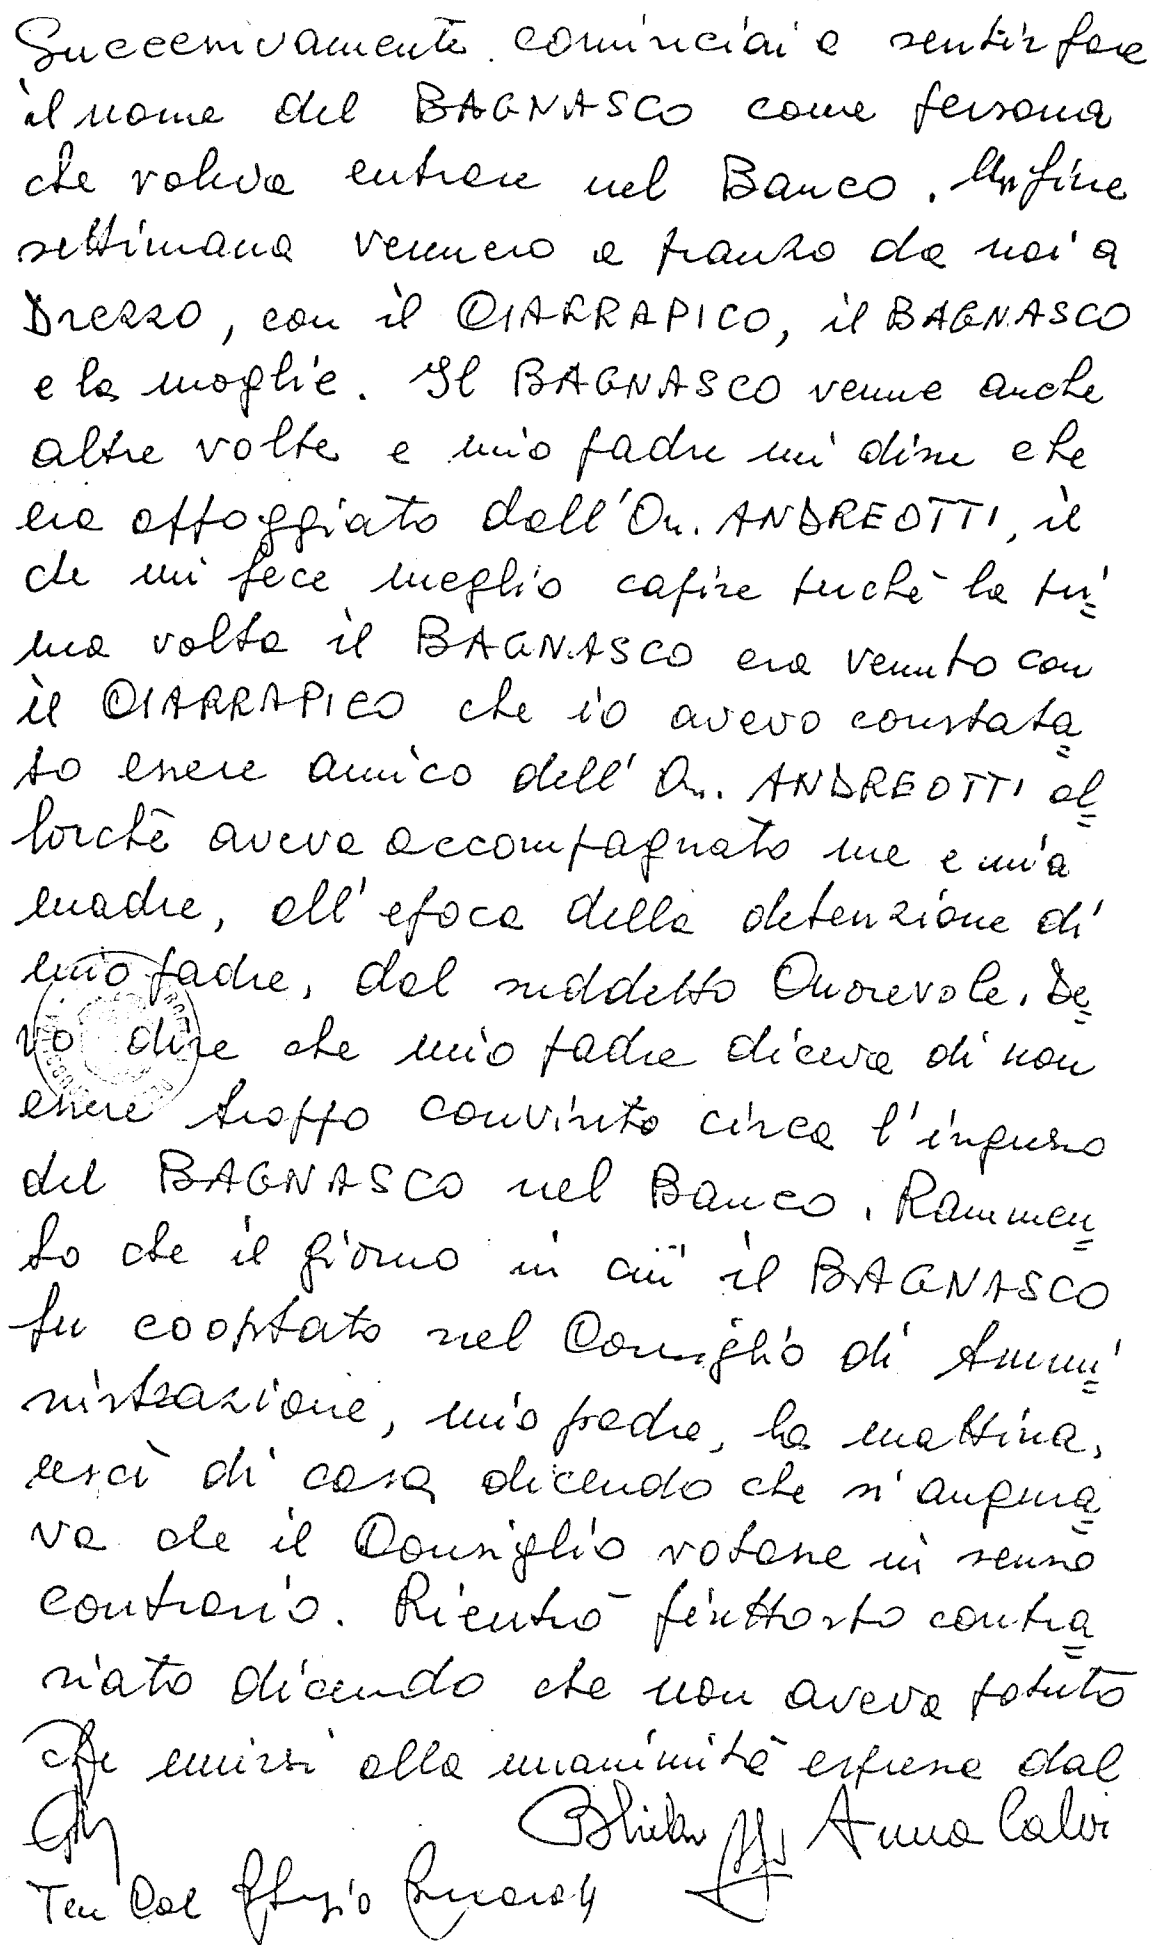 Successivamente cominciai a sentir fare
il nome del BAGNASCO come persona
che voleva entrare nel Banco. Un fine
settimana vennero a pranzo da noi a
Drezzo, con il CIARRAPICO, il BAGNASCO
e la moglie. Il BAGNASCO venne anche
altre volte e mio padre mi disse che
era appoggiato dall'On. ANDREOTTI, il
che mi fece meglio capire perchè la pri=
ma volta il BAGNASCO era venuto con
il CIARRAPICO che io avevo constata=
to essere amico dell'On. ANDREOTTI al=
lorchè aveva accompagnato me e mia
madre, all'epoca della detenzione di
mio padre, dal suddetto Onorevole. De=
vo dire che mio padre diceva di non
essere troppo convinto circa l'ingresso
del BAGNASCO nel Banco. Rammen=
to che il giorno in cui il BAGNASCO
fu cooptato nel Consiglio di Ammi=
nistrazione, mio padre, la mattina,
uscì di casa dicendo che si augura=
va che il Consiglio votasse in senso
contrario. Rientrò piuttosto contra=
riato dicendo che non aveva potuto
che unirsi alla unanimità espressa dal
Anna Calvi
Ten Col